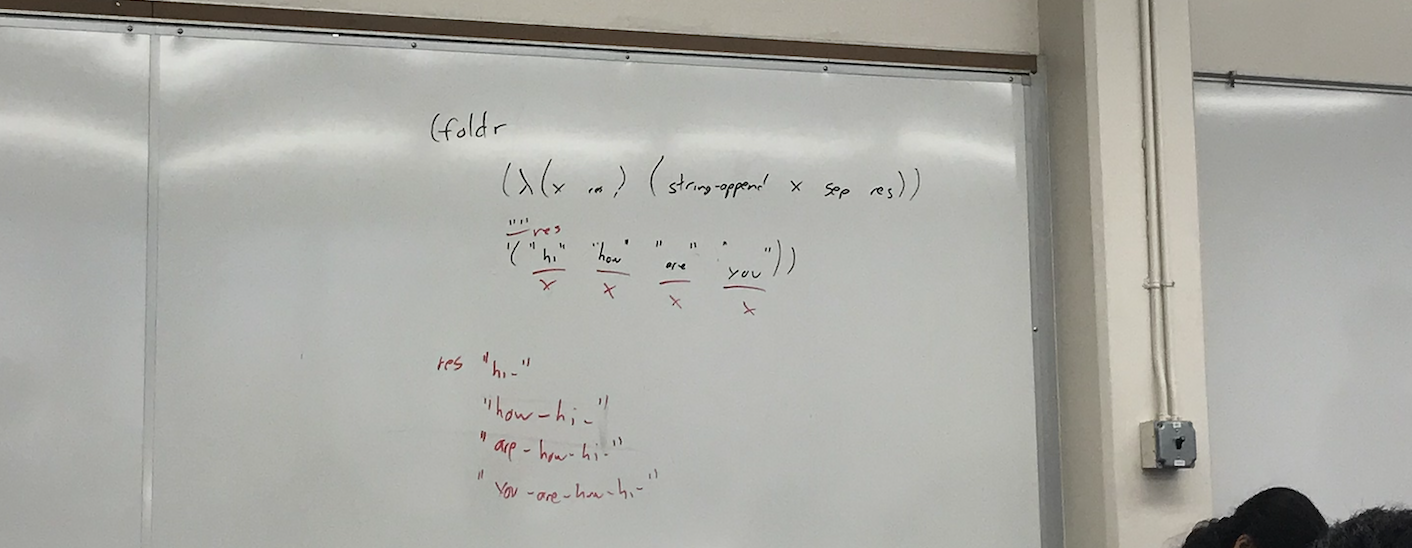 (foldr
(λ(x res) (string-append x sep res))
"" res
'("hi" "how" "are" "you"))
x x x x
res "hi-"
"how-hi-"
"are-how-hi-"
"you-are-how-hi-"